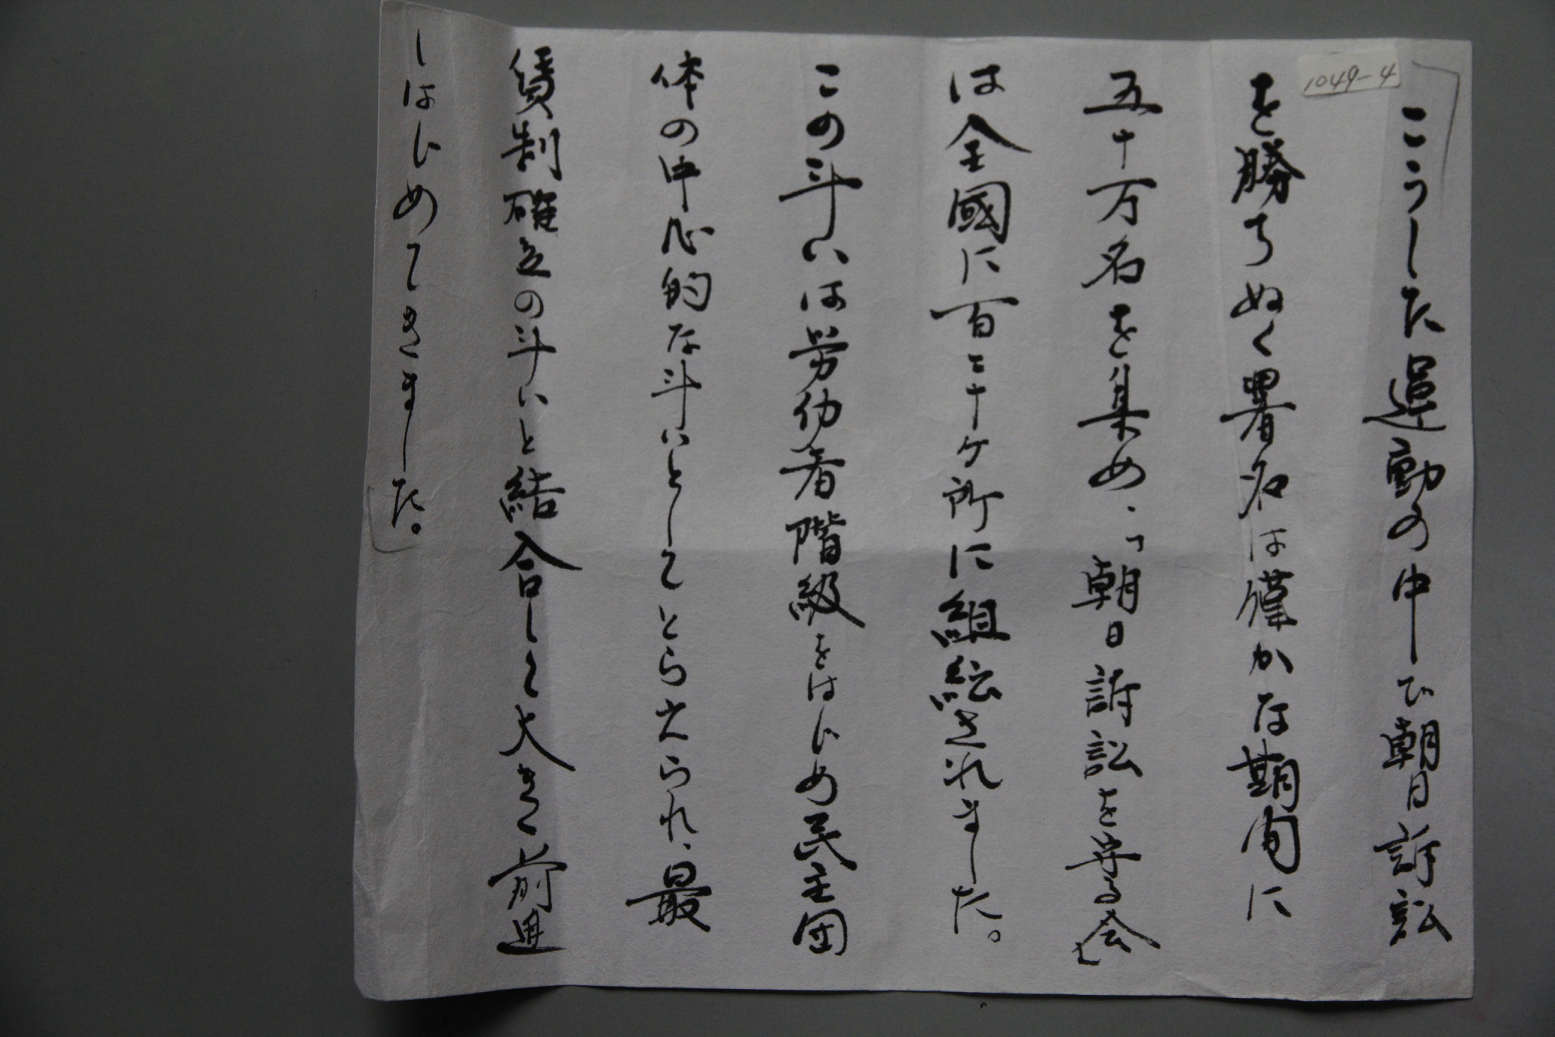 1049-4
こうした運動の中で朝日訴訟
を勝ちぬく署名は僅かな期間に
五十万名を集め、「朝日訴訟を守る会」
は全國に百二十ケ所に組织されました。
この斗いは労仂者階級をはじめ民主団
体の中心的な斗いとしてとらえられ、最
賃制確立の斗いと結合して大きく前進
しはじめてきました。